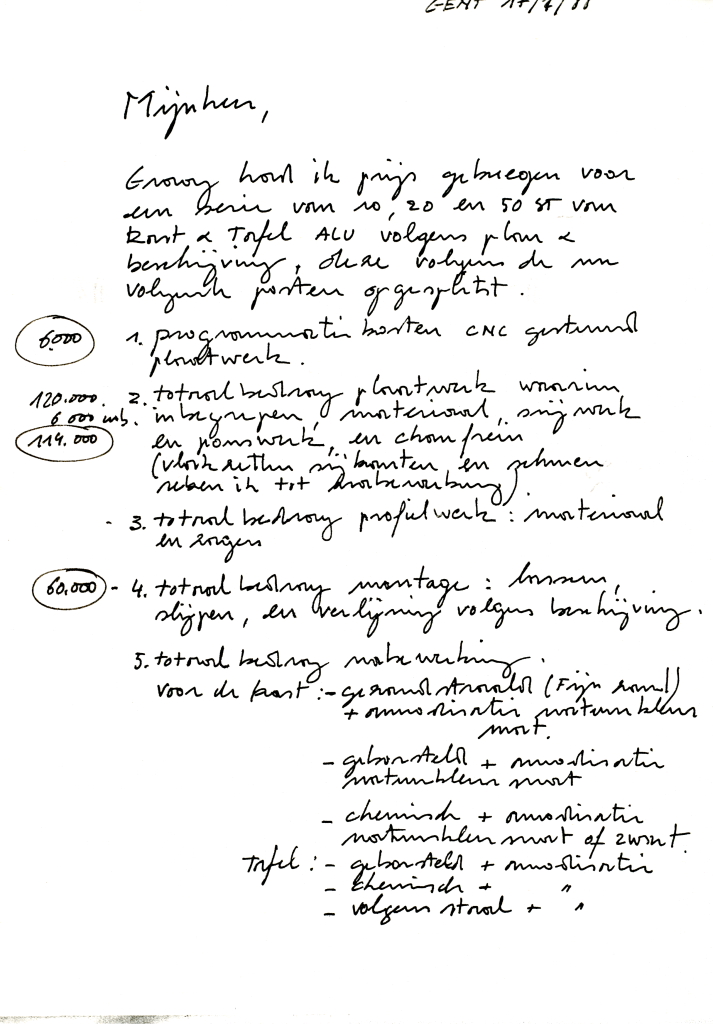 GENT 17/7/88
Mijnheer,
Graag had ik prijs gekregen voor
een serie van 10, 20 en 50 ST van
Kast & Tafel ALU volgens plan &
beschrijving, deze volgens de nu
volgende posten opgesplitst.
6.000 1. programmatie kosten CNC gestuurd
plaatwerk.
120.000. 2. totaal bedrag plaatwerk waarin
6.000 inb. inbegrepen, materiaal, snijwerk
114.000 en ponswerk, en chanfrein
(vlak zetten snijkanten, en
reken ik tot nabewerking)
- 3. totaal bedrag profielwerk : materiaal
en zagen
60.000 - 4. totaal bedrag montage : lassen,
slijpen, en verlijming volgens beschrijving.
5. totaal bedrag nabewerking.
voor de kast : - gezandstraald (Fijn zand)
+ annodisatie natuurkleur
mat.
- geborsteld + annodisatie
natuurkleur mat
- chemisch + annodisatie
natuurkleur mat of zwart.
Tafel : - geborsteld + annodisatie
- chemisch + "
- volgens staal + "